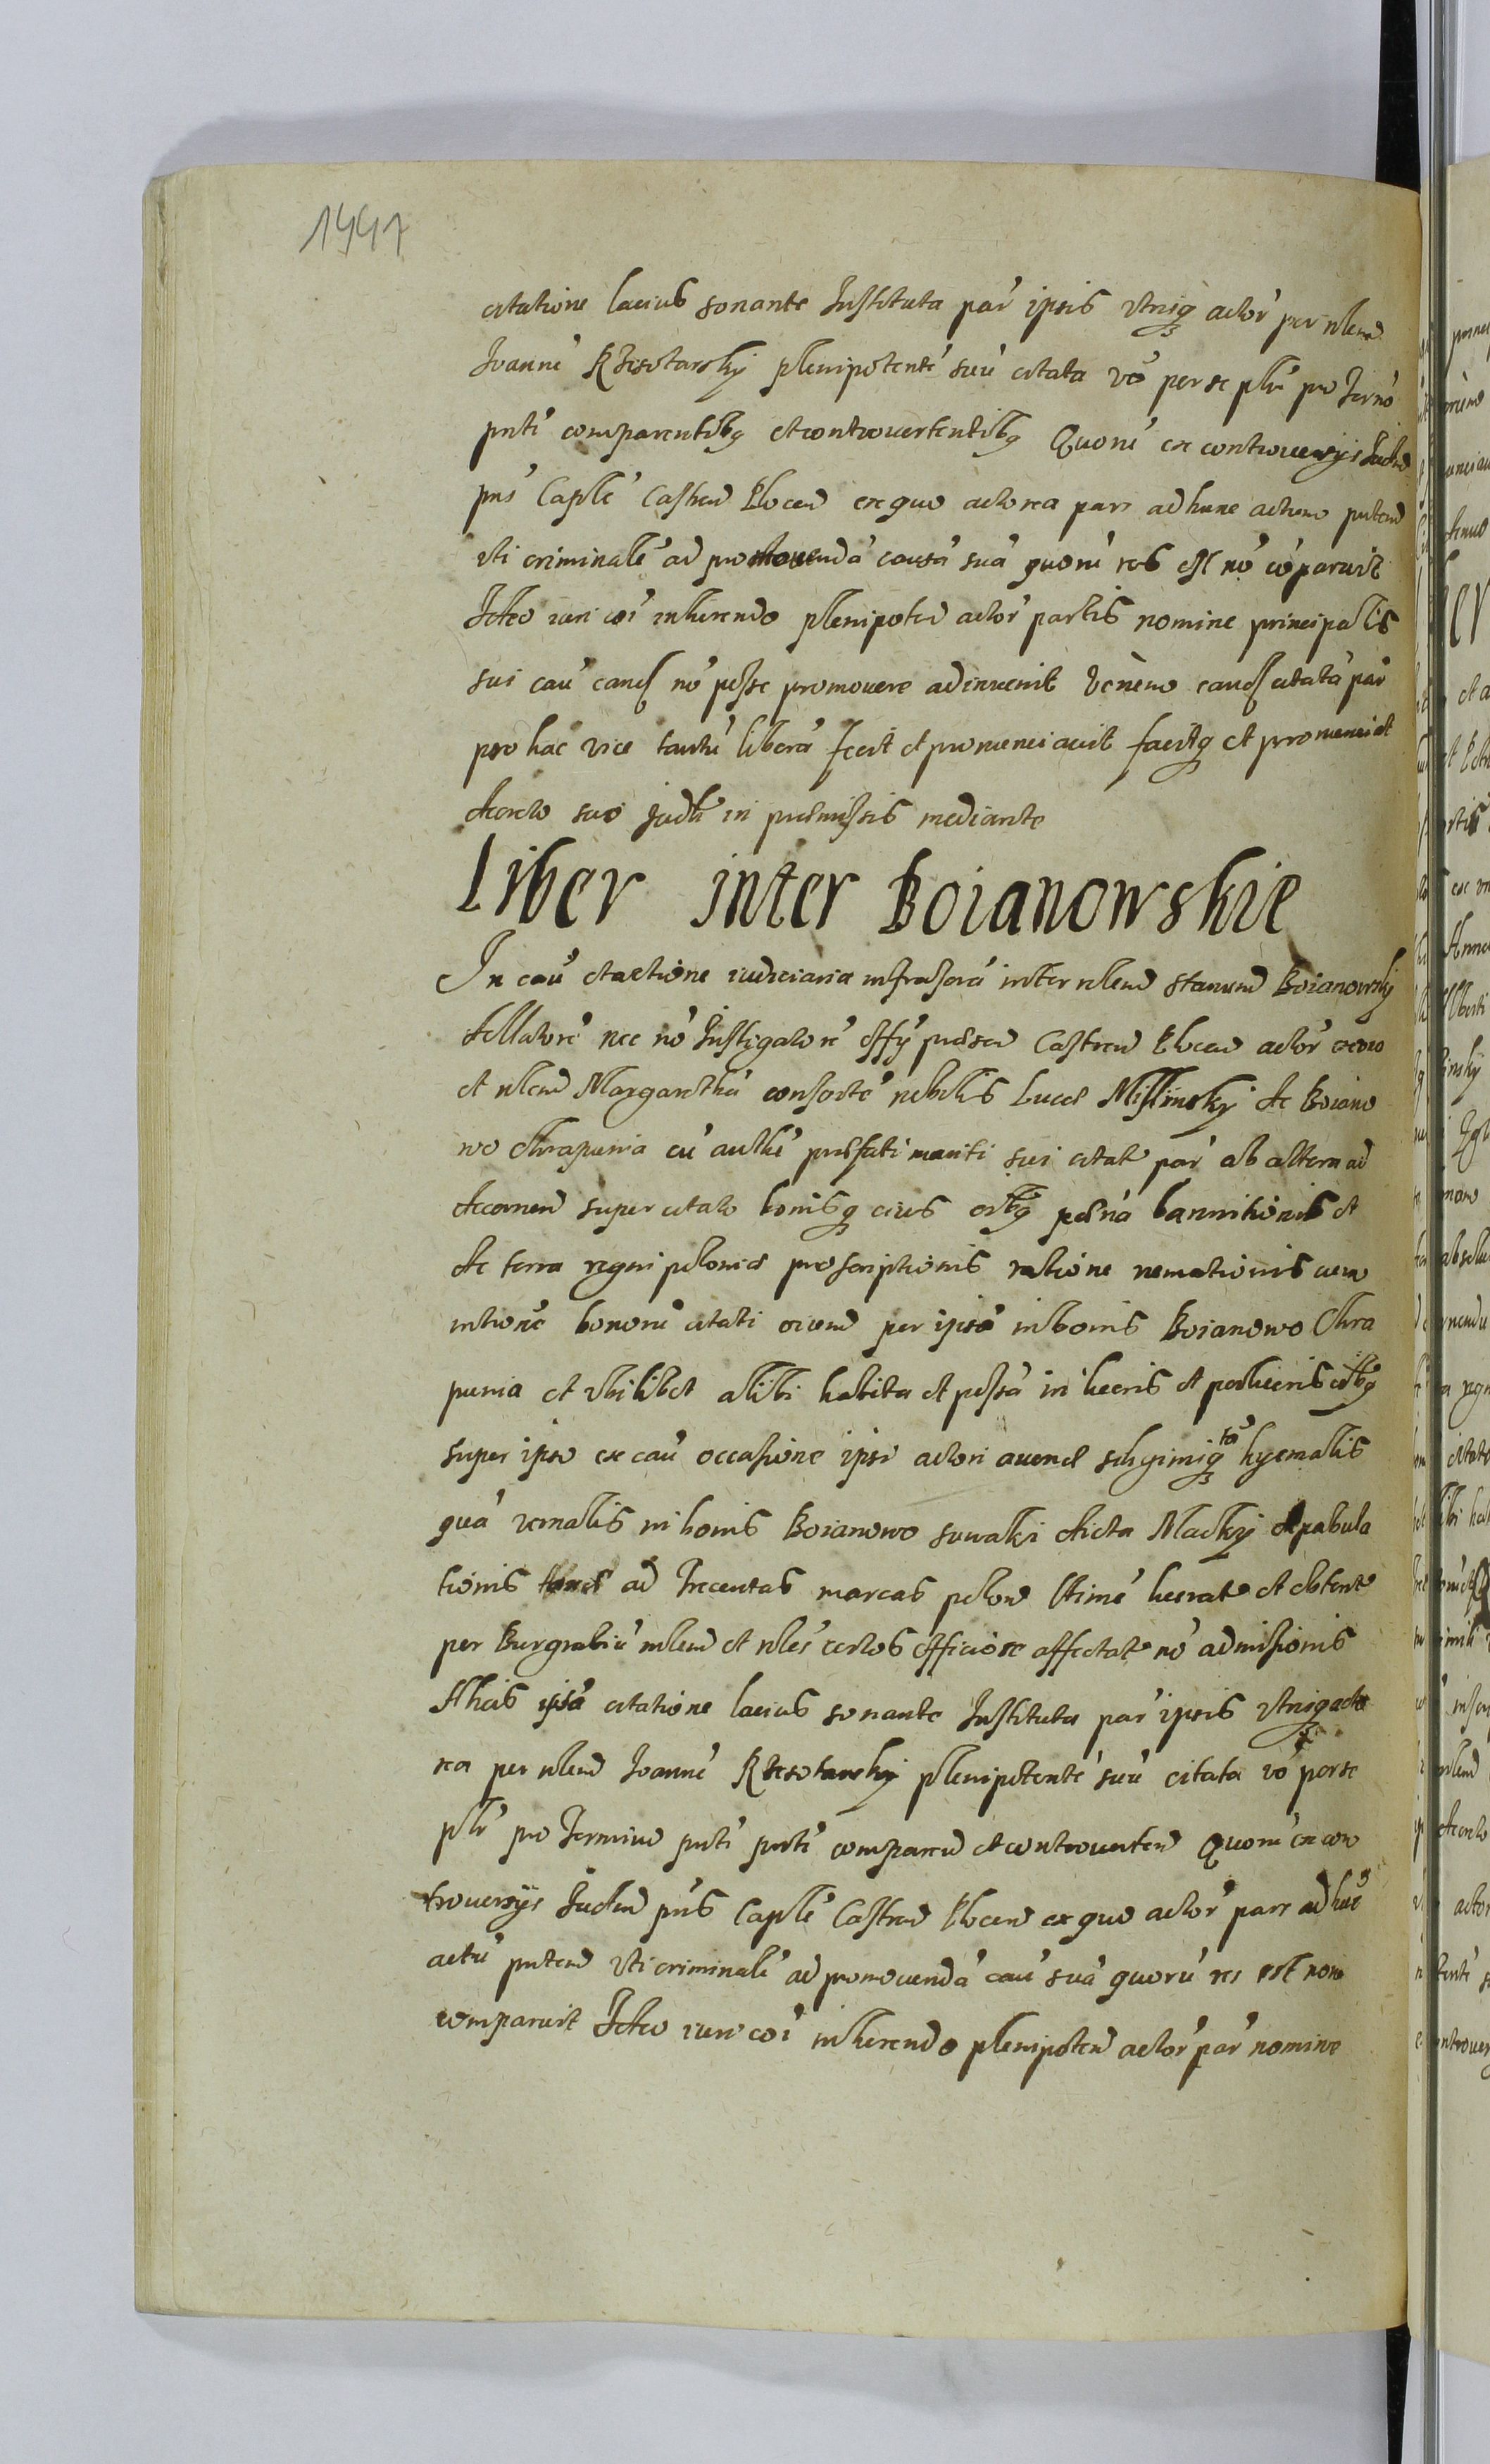 1441
citatione lacius sonante Instituta par ipsis utrisq actor per nlem
Joanne Rzesotarsky plenipotente suu citata vo per se plr pro termo
pnti comparentibq et controvertentibq Quoru ex controversys Judm
pns Caple Castren Plocen ex quo actorea pars ad hunc actum puten
uti criminale ad promovenda causa sua quoru res est no coparuit
Ideo iuri coi inherendo plenipoten actor partis nomine principalis
sui cau no posse promovere adinvenit citata par
pro hac vice tantu libera fecit et pronunciavit facitq et pronunciat
decreto suo Judli in praemissis mediante
Liber inter Boianowskie
In cau et actione iudiciaria infrascra inter nlem Stanum Boianowsky
dellatore nec no Instigatore offy praesen Castren Plocen actor
et nlem Margaretha consorte nobilis Lucae Misslinsky de Boiano
wo Chrapunia cu authe praefati mariti sui citat par ab altera ad
decernen super citato bonisq eius oibq poena bannitionis et
de terra regni poloniae proscriptionis ratione
intione bonoru citati per ipsa in bonis Boianowo Chra
punia et ubilibet alibi habita et possa in lucris et perlucris oibq
super ipso ex cau occasione ipsi actori avenae seliginisq ta hyemalis
qua vernalis in bonis Boianowo suwaki dicta Macky depabula
tionis ad trecentas marcas polon lucrat et obtent
per Burgrabiu nlem et nles certos officiose affectat no admissionis
citatione lacius sonante Instituta par ipsis utrisq acto
rea per nlem Joanne Rzesotarsky plenipotente suu citata vo per se
plr pro Termino pnti pnti comparen et controverten Quoru ex con
troversys Judm pns Caple Castren Plocen ex quo actor pars ad huc
actu puten uti criminale ad promovenda cau sua quoru res est non
comparuit Ideo iuri coi inherendo plenipoten actor par nomine